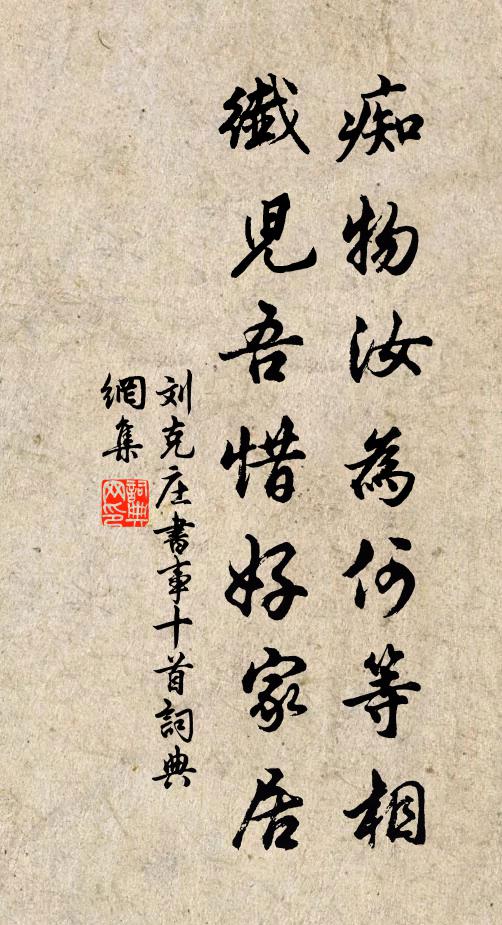 痴物汝為何等相
纖児吾惜好家居
刘克庄書事十首詞典
網集
詞典网印